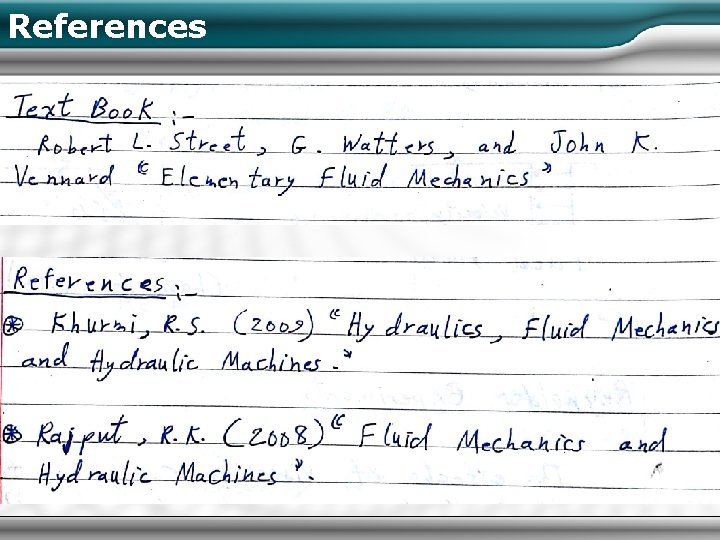 References
Text Book :-
Robert L. Street, G. Watters, and John K.
Vennard "Elementary Fluid Mechanics"
References :-
⊛ Khurmi, R.S. (2009) "Hydraulics, Fluid Mechanics
and Hydraulic Machines."
⊛ Rajput, R.K. (2008) "Fluid Mechanics and
Hydraulic Machines".